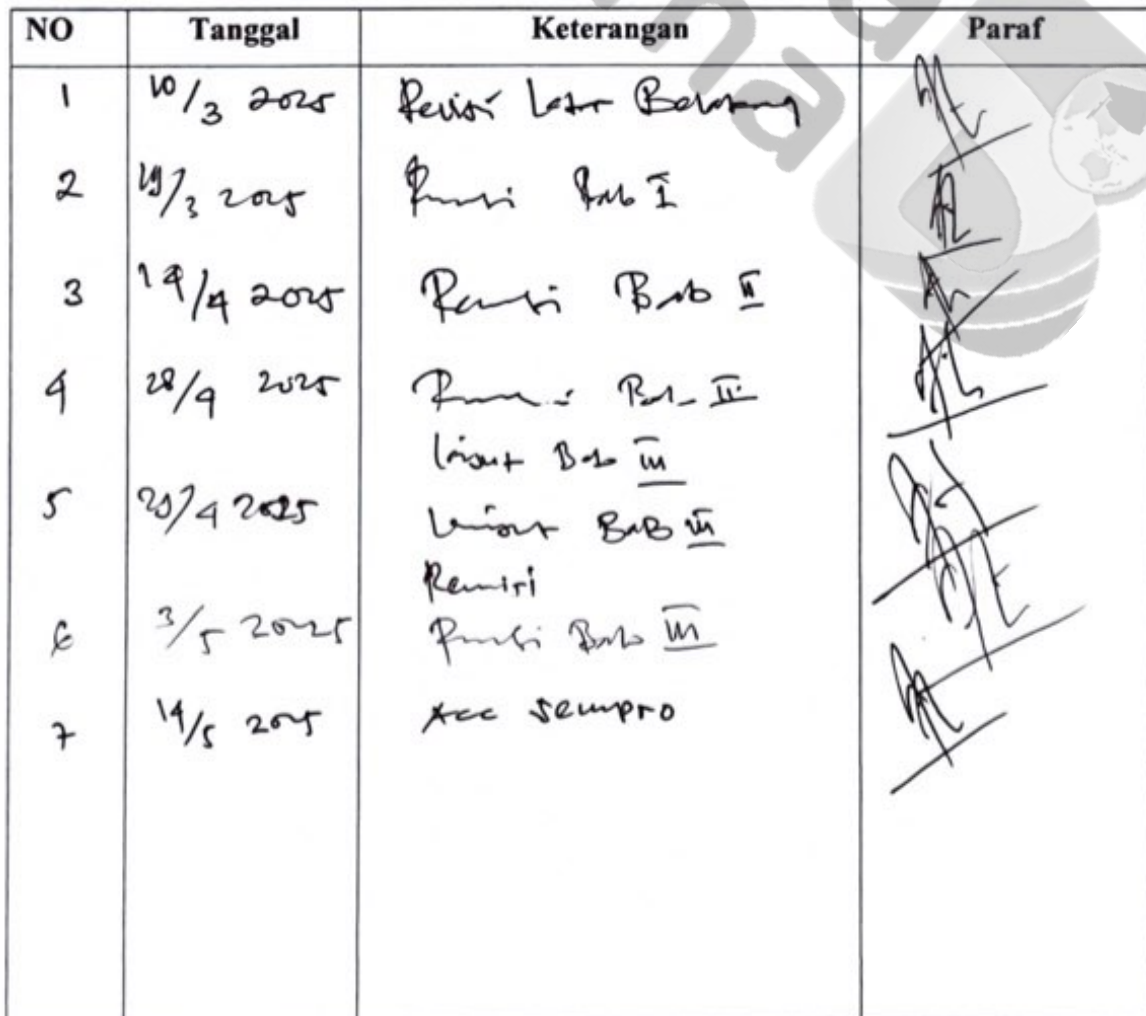 NO Tanggal Keterangan Paraf
1 10/3 2025 Revisi Latar Belakang
2 19/3 2025 Revisi Bab I
3 14/4 2025 Revisi Bab II
4 28/4 2025 Revisi Bab II
lanjut Bab III
5 29/4 2025 lanjut BaB III
Revisi
6 3/5 2025 Revisi Bab III
7 14/5 2025 Acc Sempro